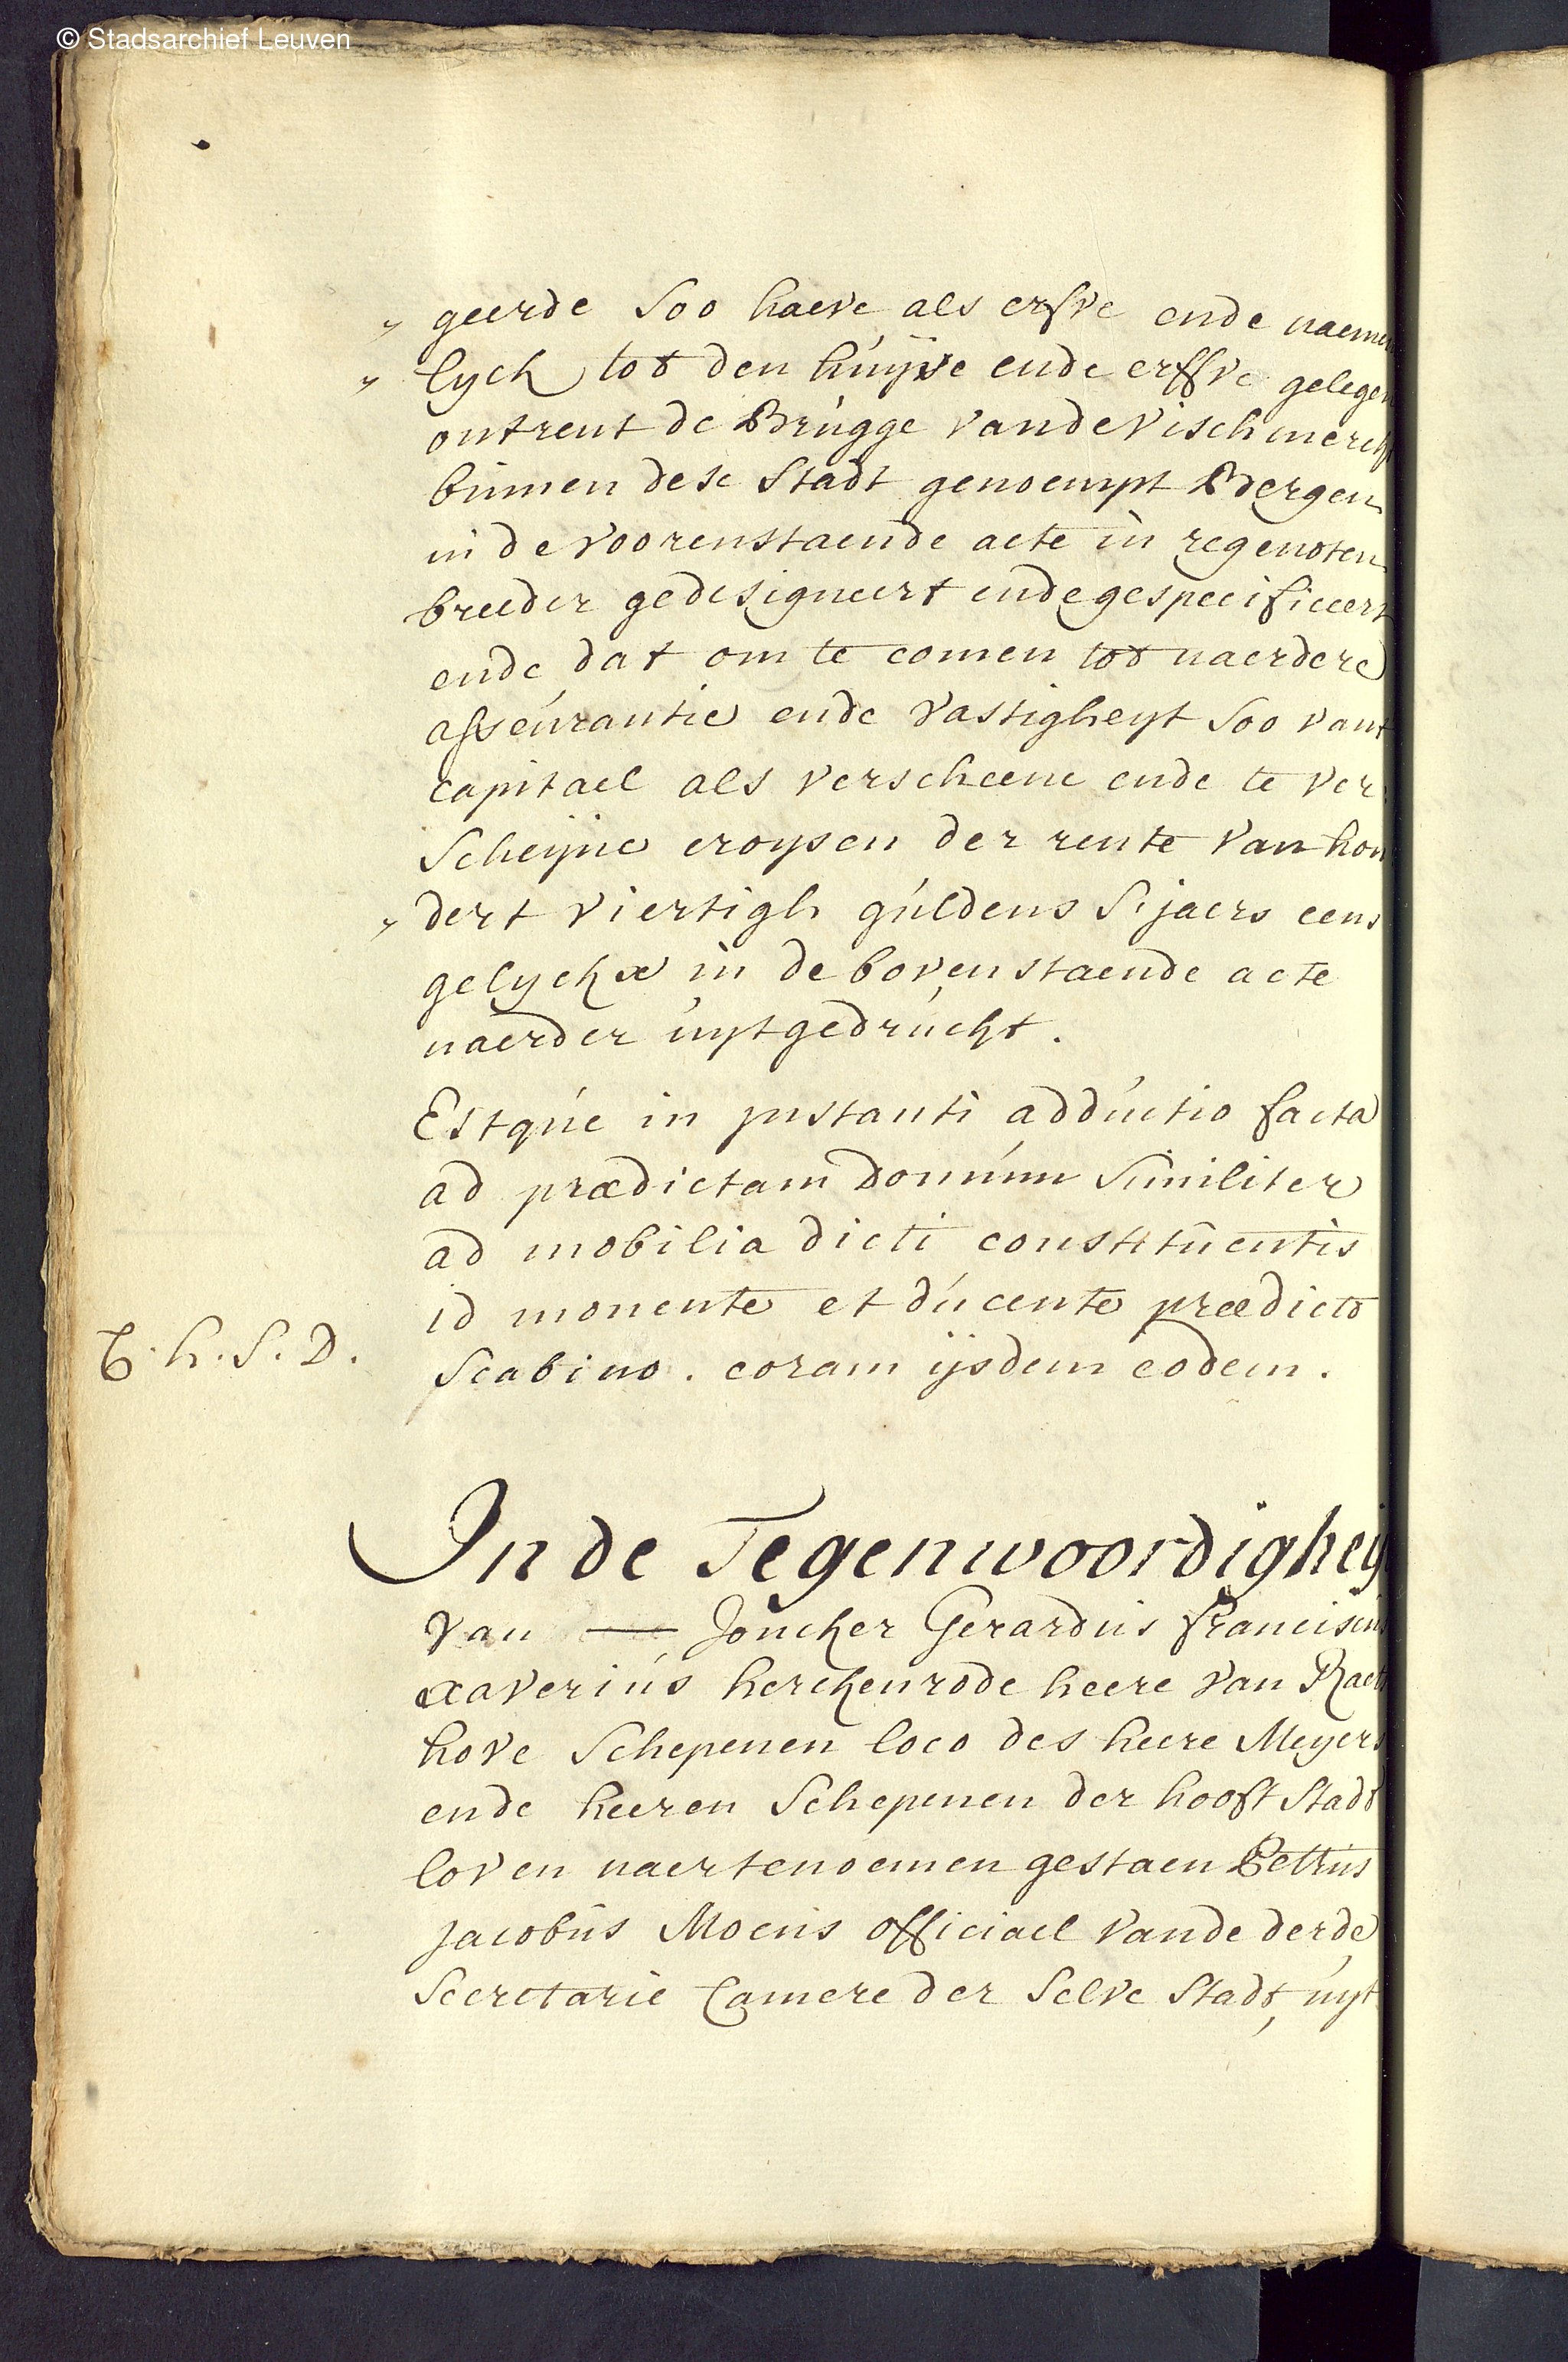 © Stadsarchief Leuven
" geerde soo haeve als erfve ende naemen
" lyck tot den huÿse ende erffve gelegen
ontrent de Brugge vande Vischmerckt
binnen dese Stadt genoempt Bergen
in de voorenstaende acte in regenoten
breeder gedesigneert ende gespecificeert
ende dat om te comen tot naerdere
asseurantie ende vastigheyt soo vant
capitael als verscheene ende te ver
scheyne croysen der rente van hon
" dert viertigh guldens s'jaers eens
gelyckx in de bovenstaende acte
naerder uytgedruckt.
Estque in instanti adductio facta
ad prædictam domum similiter
ad mobilia dicti constituentis
id monente et ducente prædicto
C. h. S. D.
Scabino. coram ijsdem eodem.
In de Tegenwoordighey
van — Joncker Gerardus franciscus
xaverius herckenrode heere van Raet
hove Schepenen loco des heere Meyers
ende heeren Schepenen der hooft Stadt
loven naertenoemen gestaen Petrus
jacobus Moens officiael vande derde
Secretarie Camere der selve Stadt, uyt